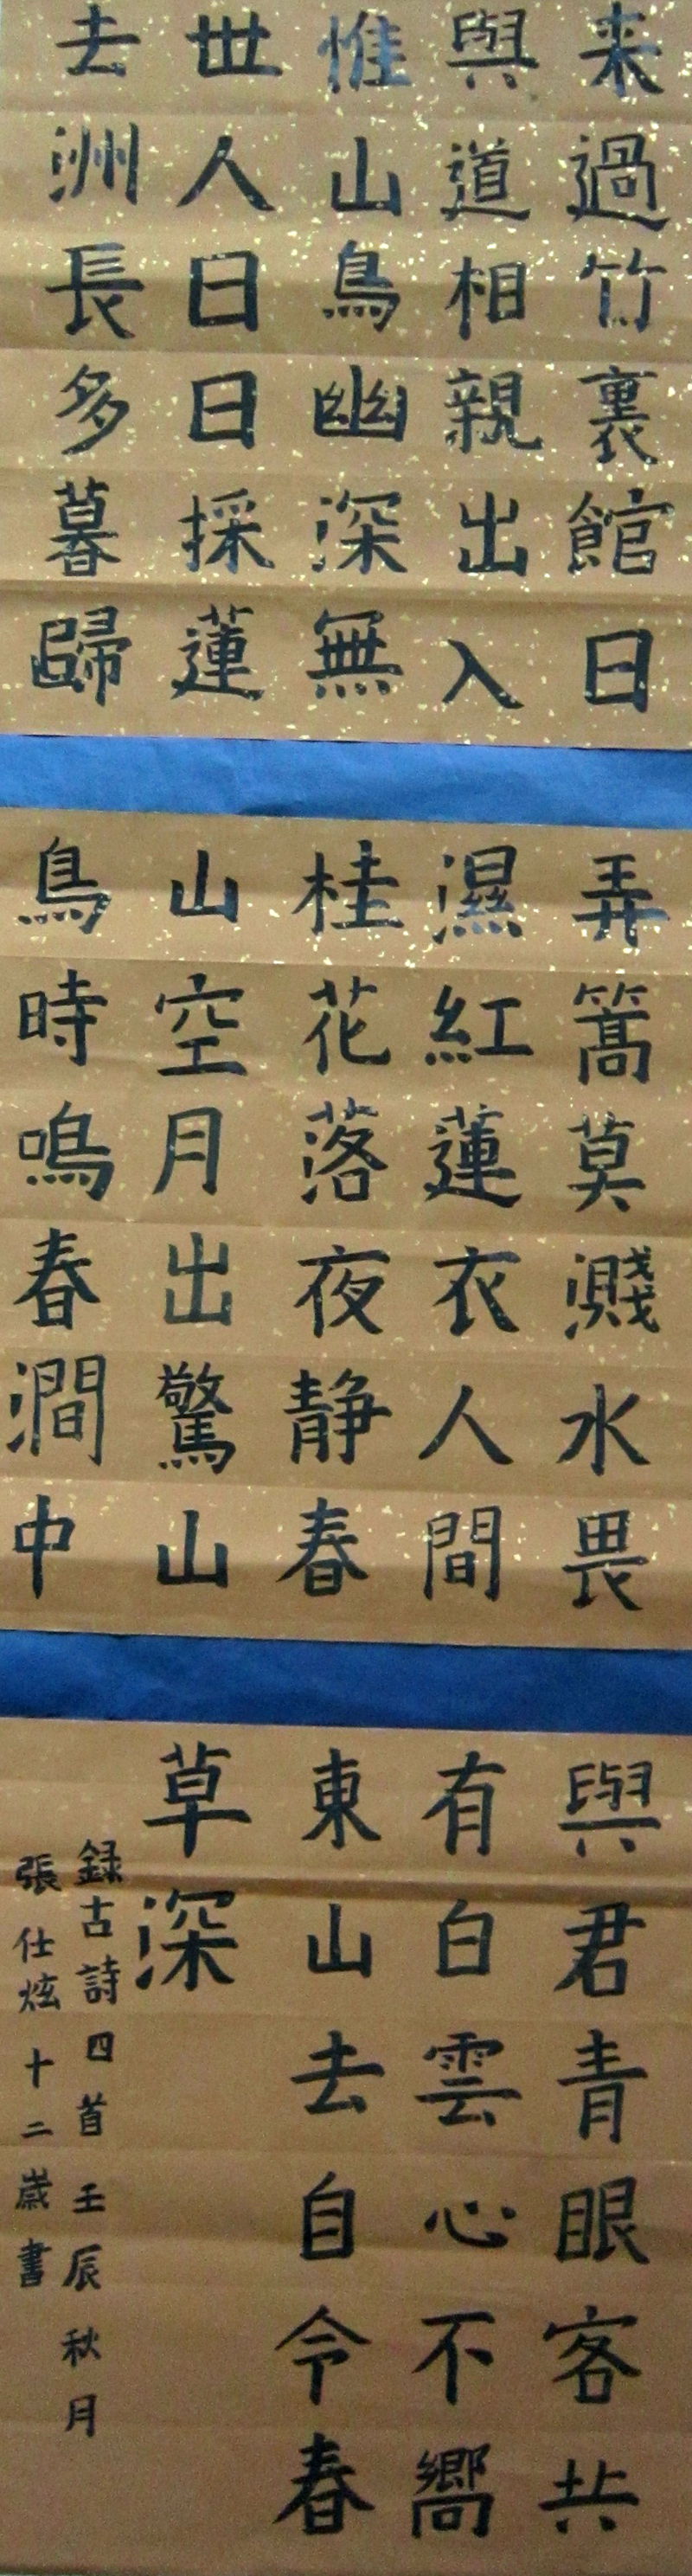 来過竹裏館日
與道相親出入
惟山鳥幽深無
世人日日採蓮
去洲長多暮歸
弄篙莫濺水畏
濕紅蓮衣人間
桂花落夜静春
山空月出驚山
鳥時鳴春澗中
與君青眼客共
有白雲心不嚮
東山去自令春
草深
録古詩四首壬辰秋月
張仕炫十二歲書